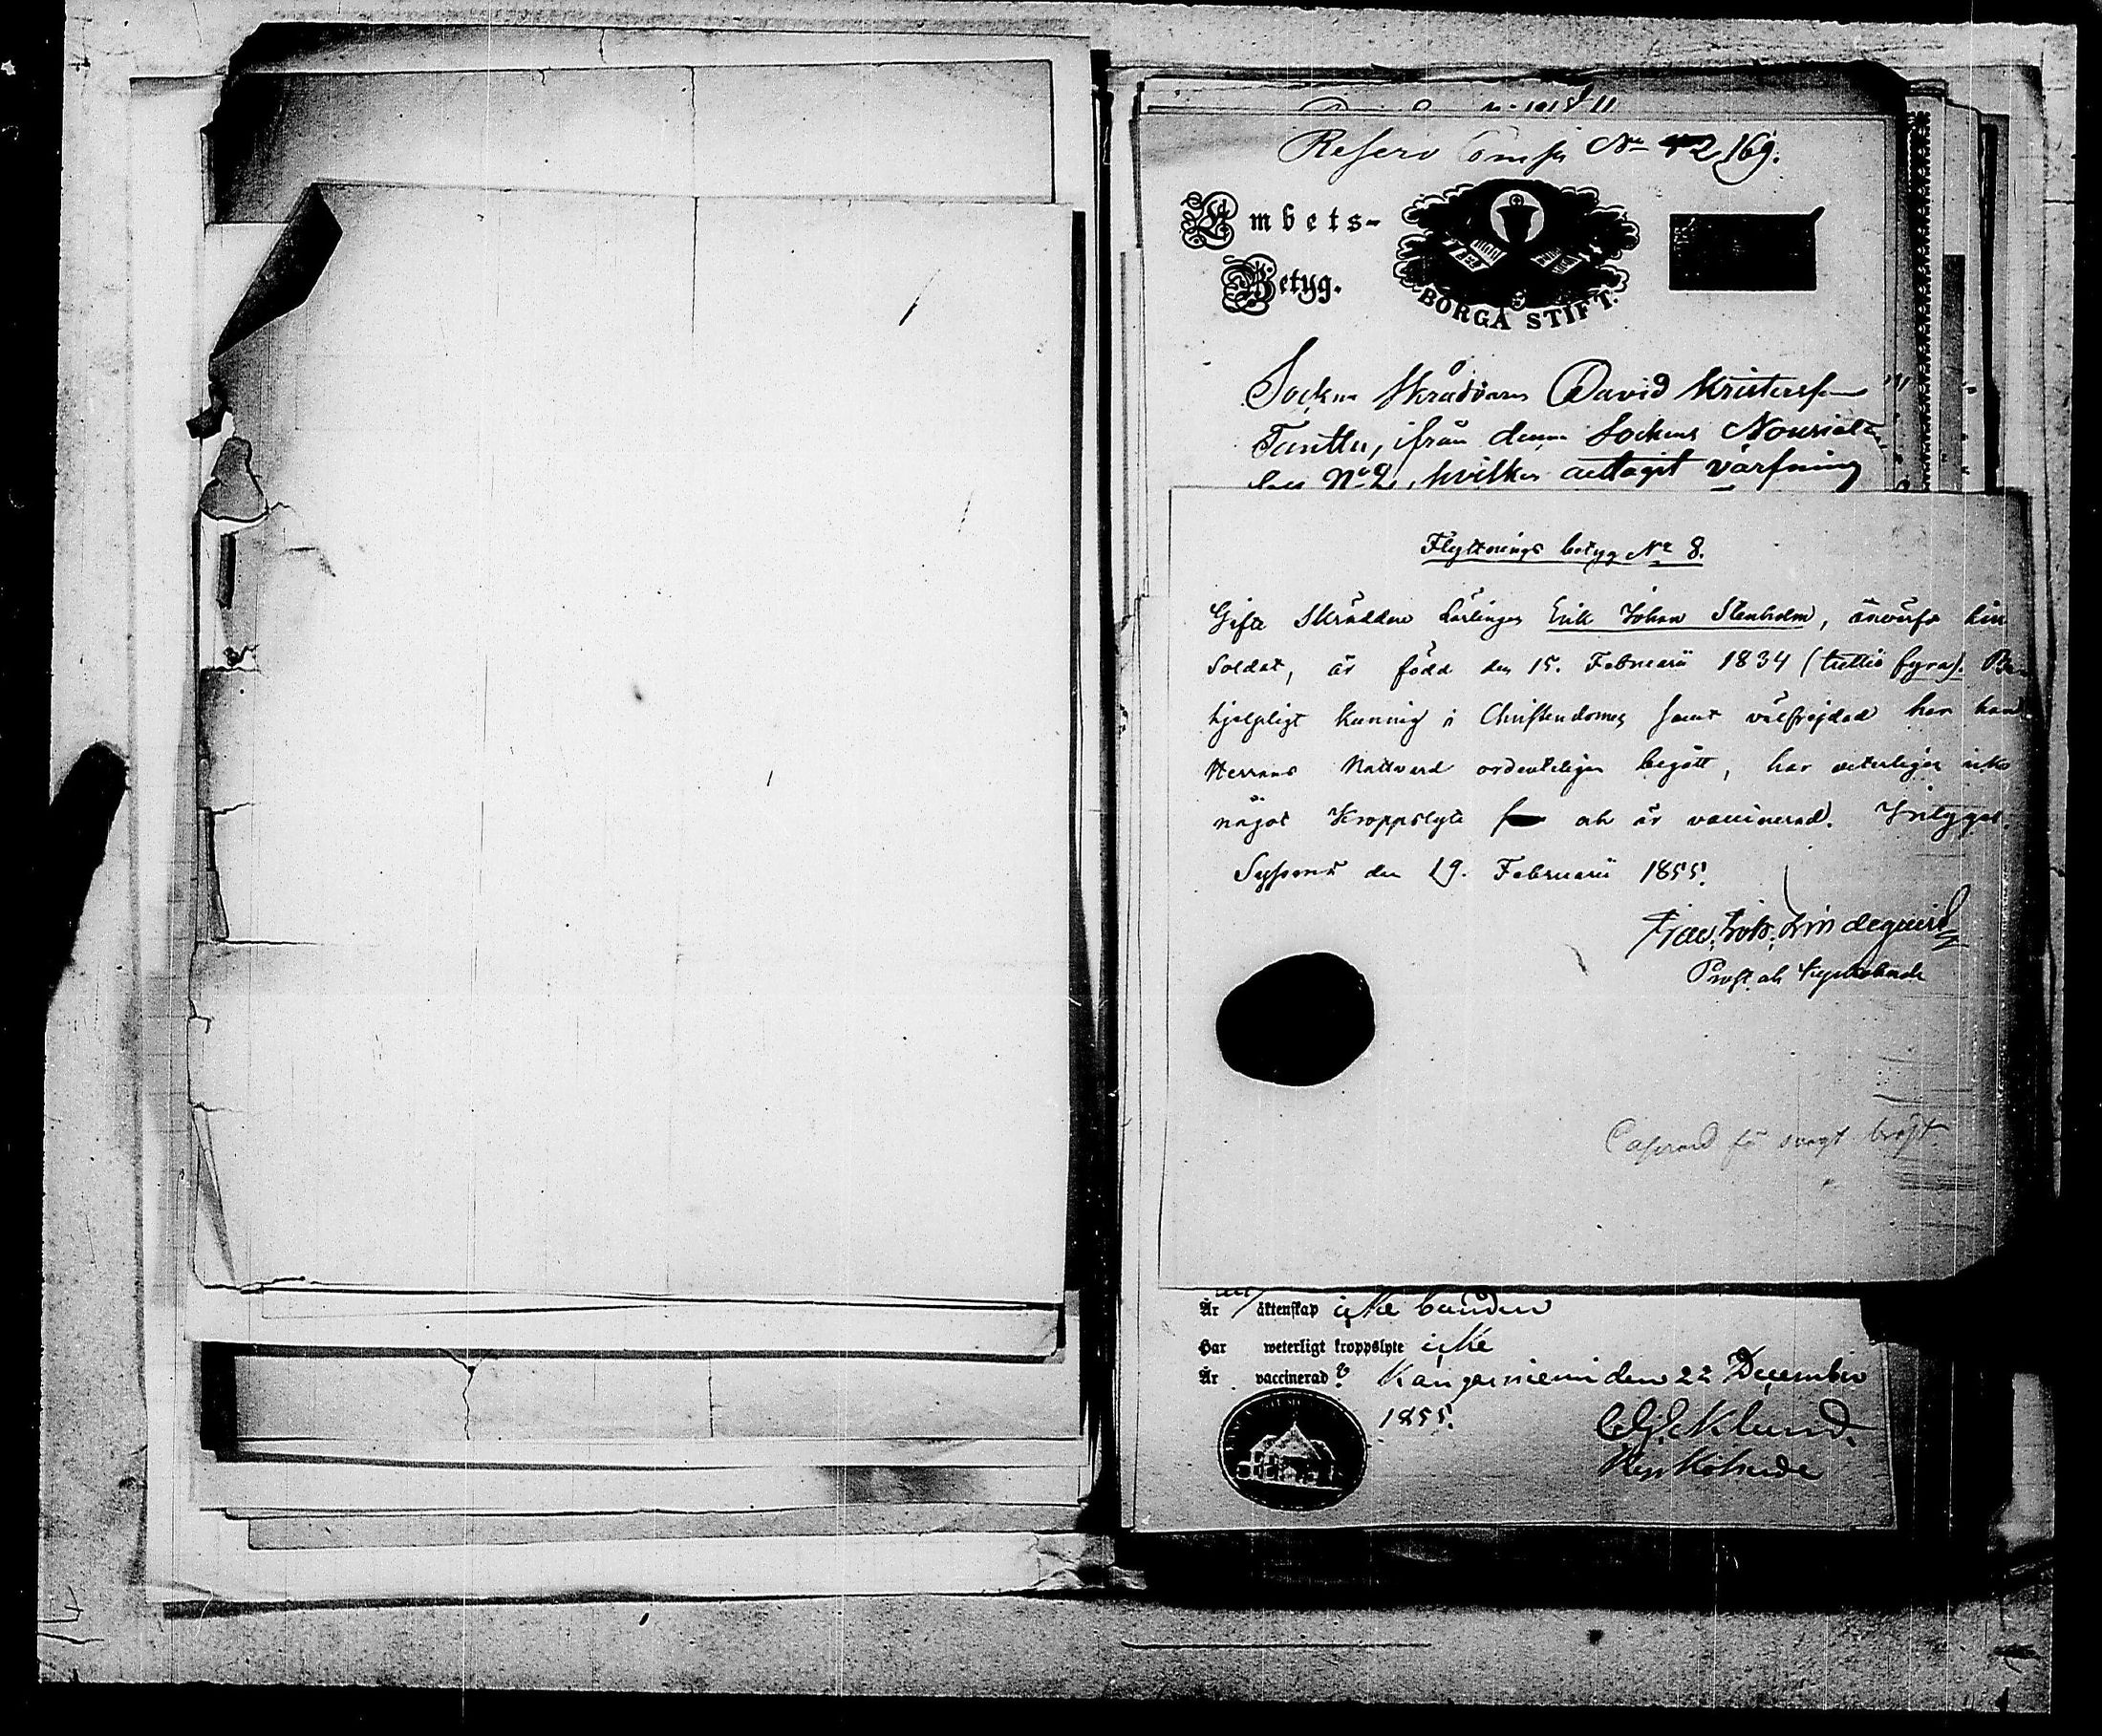 Reserv Comp Nr 2169.
Embets-
Betyg.
BORGÅ STIFT.
Socken Skräddaren David Kristersson
Tanttu, ifrån denna Sockens
No 2, hvilken antagit värfning
Flyttnings betyg Nr 8.
Gifte Skräddare Lärlingen Erik Johan Stenholm, änvärfd här
Soldat, är född den 15. Februarii 1834 (trettio fyra). Be-
hjelpligt kunnig i Christendomen samt välfrejdad har han
Herrans Nattvard ordenteligen begått, har veterligen icke
något Kroppslyte och är vaccinerad. Intygas.
Sysmä den 19. Februarii 1855.
Lindequist
Prost och Kyrkoherde
Casserad för svagt bröst.
Är äktenskap icke bunden
Har weterligt kroppslyte icke
Är vaccinerad Kangasniemi den 22 December
1855.
Eklund.
Kyrkoherde